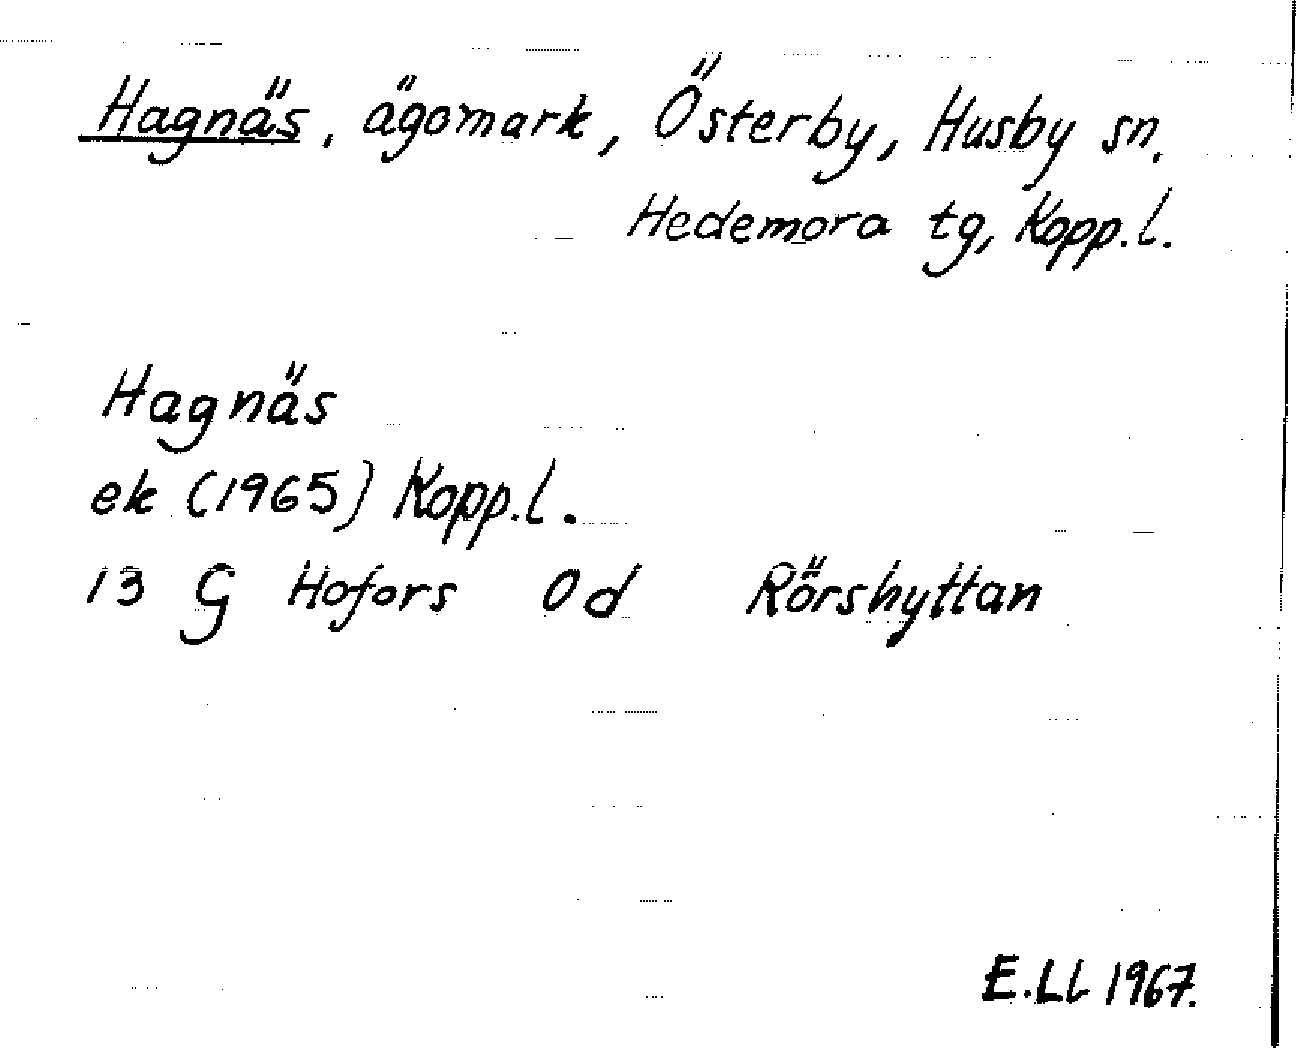 Hagnäs, ägomark, Österby, Husby sn.
Hedemora tg, Kopp.l.
Hagnäs
ek (1965) Kopp.l.
13 G Hofors 0d Rörshyttan
E.Ll 1967.